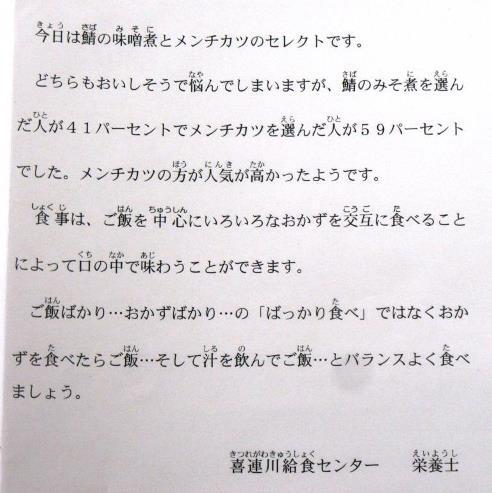 今日は鯖の味噌煮とメンチカツのセレクトです。
どちらもおいしそうで悩んでしまいますが、鯖のみそ煮を選ん
だ人が41パーセントでメンチカツを選んだ人が59パーセント
でした。メンチカツの方が人気が高かったようです。
食事は、ご飯を中心にいろいろなおかずを交互に食べること
によって口の中で味わうことができます。
ご飯ばかり…おかずばかり…の「ばっかり食べ」ではなくおか
ずを食べたらご飯…そして汁を飲んでご飯…とバランスよく食べ
ましょう。
喜連川給食センター 栄養士